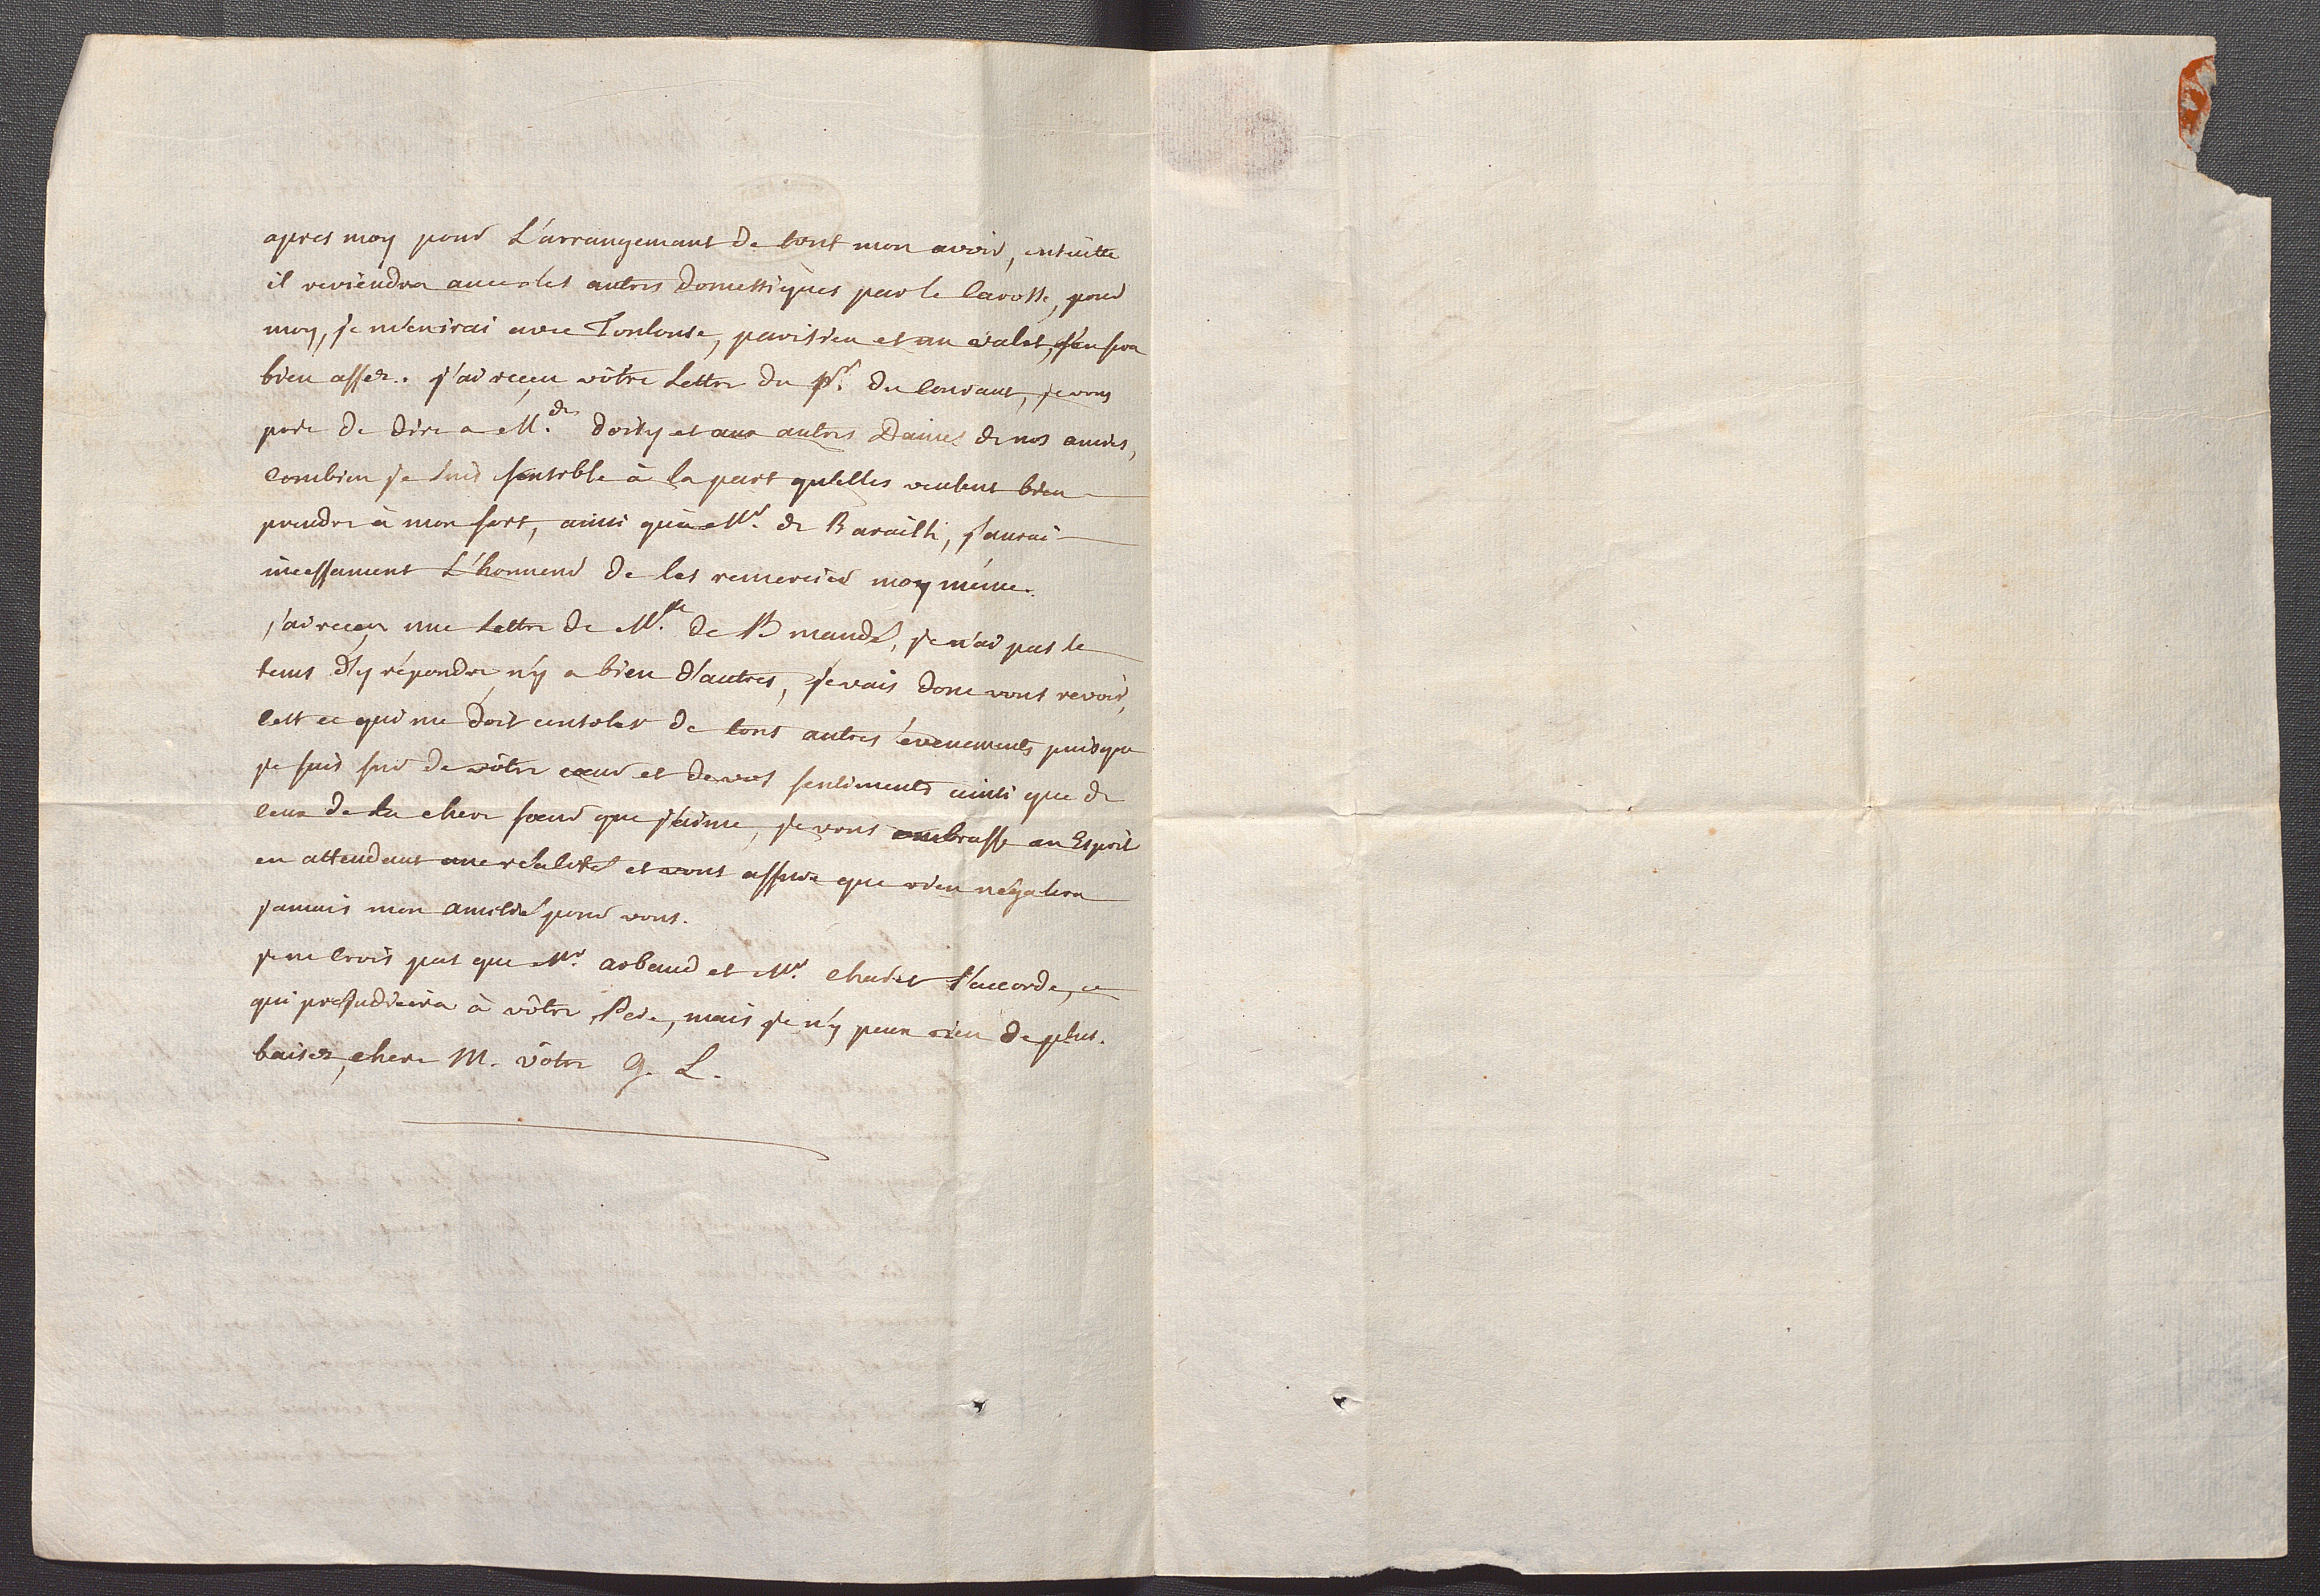 apres moy pour L'arrangemant de tout mon avoir, ensuitte
il reviéndra avec les autres domestiques par le Carosse, pour
moy, je m'en irai avec Toulouse, parisien et un valet, s'en sera
bien assez. j'ai reçeu vôtre Lettre du pr. du Courant, je vous
prie de dire a Mde. doisy et aux autres Dames de nos amies,
Combien je suis sensible à la part qu'elles veulent bien
prendre à mon sort, ainsi qu'a Mr. de Barailh, j'aurai
incessament L'honneur de les remercier moy même.
j'ai reçeu une Lettre de Mlle. de B mandé, je n'ai pas le
tems d'y répondre n'y a bien d'autres, je vais donc vous revoir,
C'est ce qui me doit consoler de tous autres évenements puisque
je suis sur de vôtre coeur et de vos sentiments ainsi que de
Ceux de La chere soeur que j'aime, je vous embrasse en Esprit
en attendant une réalité et vous assure que rien n'égalera
jamais mon amitié pour vous.
je ne Crois pas que Mr. arbaud et Mr. s'accorde, ce
qui préjudiciera à vôtre Pere, mais je n'y peux rien de plus.
baisez, chere M. vôtre G. L.